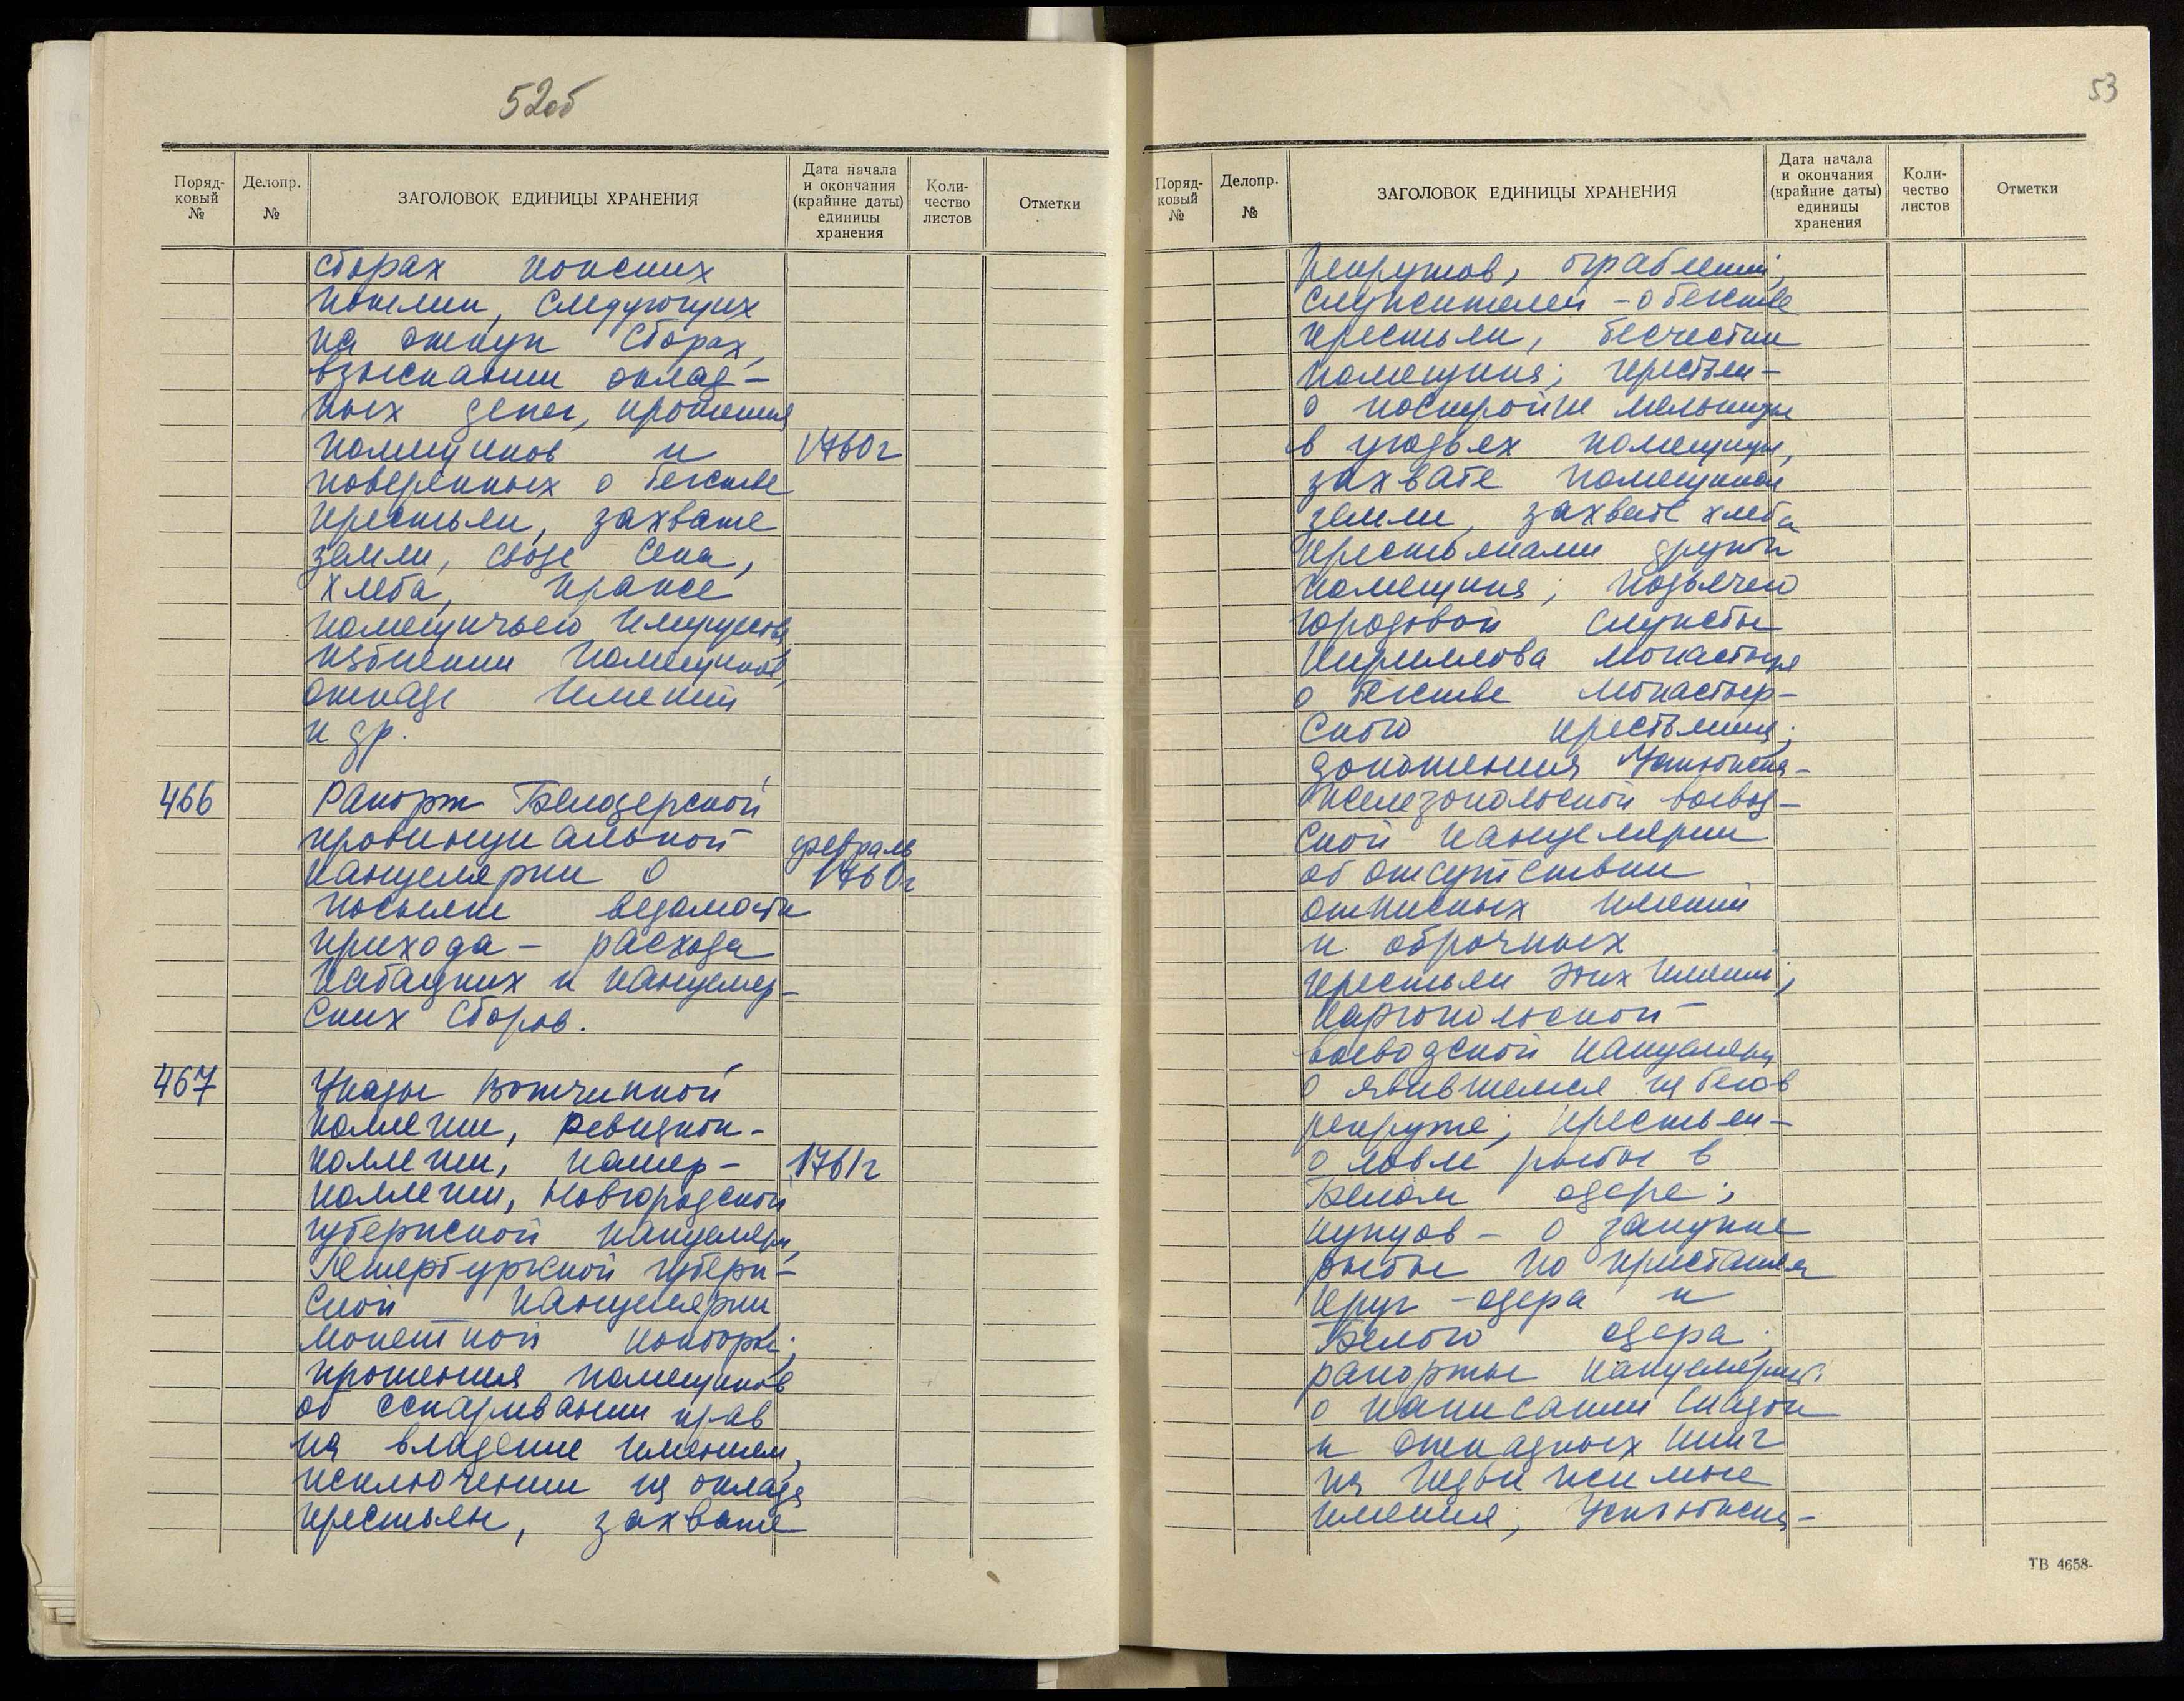 52об
Поряд-
ковый
№
Делопр.
№
ЗАГОЛОВОК ЕДИНИЦЫ ХРАНЕНИЯ
Дата начала
и окончания
(крайние даты)
единицы
хранения
Коли-
чество
листов
Отметки
сборах конских
пошлин, следующих
на откуп сборах,
взыскании оклад-
ных денег, прошения
помещиков и 1760г
поверенных о бегстве
крестьян, захвате
земли, свозе сена,
хлеба, краже
помещичьего имущества
избиении помещиков,
отказе имений
и др.
466 Рапорт Белозерской
провинциальной февраль
канцелярии о 1760г
посылке ведомости
прихода - расхода
кабацких и канцеляр-
ских сборов.
467 Указы Вотчинной
коллегии, Ревизион-
коллегии, камер- 1761г
коллегии, Новгородской
губернской канцелярии,
Петербургской губерн-
ской канцелярии
монетной конторы;
прошения помещиков
об оспаривании прав
на владение имением,
исключении из оклада
крестьян, захвате
53
Поряд-
ковый
№
Делопр.
№
ЗАГОЛОВОК ЕДИНИЦЫ ХРАНЕНИЯ
Дата начала
и окончания
(крайние даты)
единицы
хранения
Коли-
чество
листов
Отметки
рекрутов, ограблении;
служителей - о бегстве
крестьян, бесчестии
помещика; крестьян -
о постройке мельницы
в угодьях помещицы,
захвате помещиком
земли, захвате хлеба
крестьянами другого
помещика; подьячего
городовой службы
Кириллова монастыря
о бегстве монастыр-
ского крестьянина;
доношения Устюжена-
Железопольской воевод-
ской канцелярии
об отсутствии
отписных имений
и оброчных
крестьян этих имений;
Каргопольской
воеводской канцелярии
о явившемся из бегов
рекруте; крестьян -
о ловле рыбы в
Белом озере;
купцов - о закупке
рыбы по пристаням
Круг-озера и
Белого озера;
рапорты канцелярий
о написании сказок
и отказных книг
на недвижимые
имения; Устюжена-
ТВ 4658-